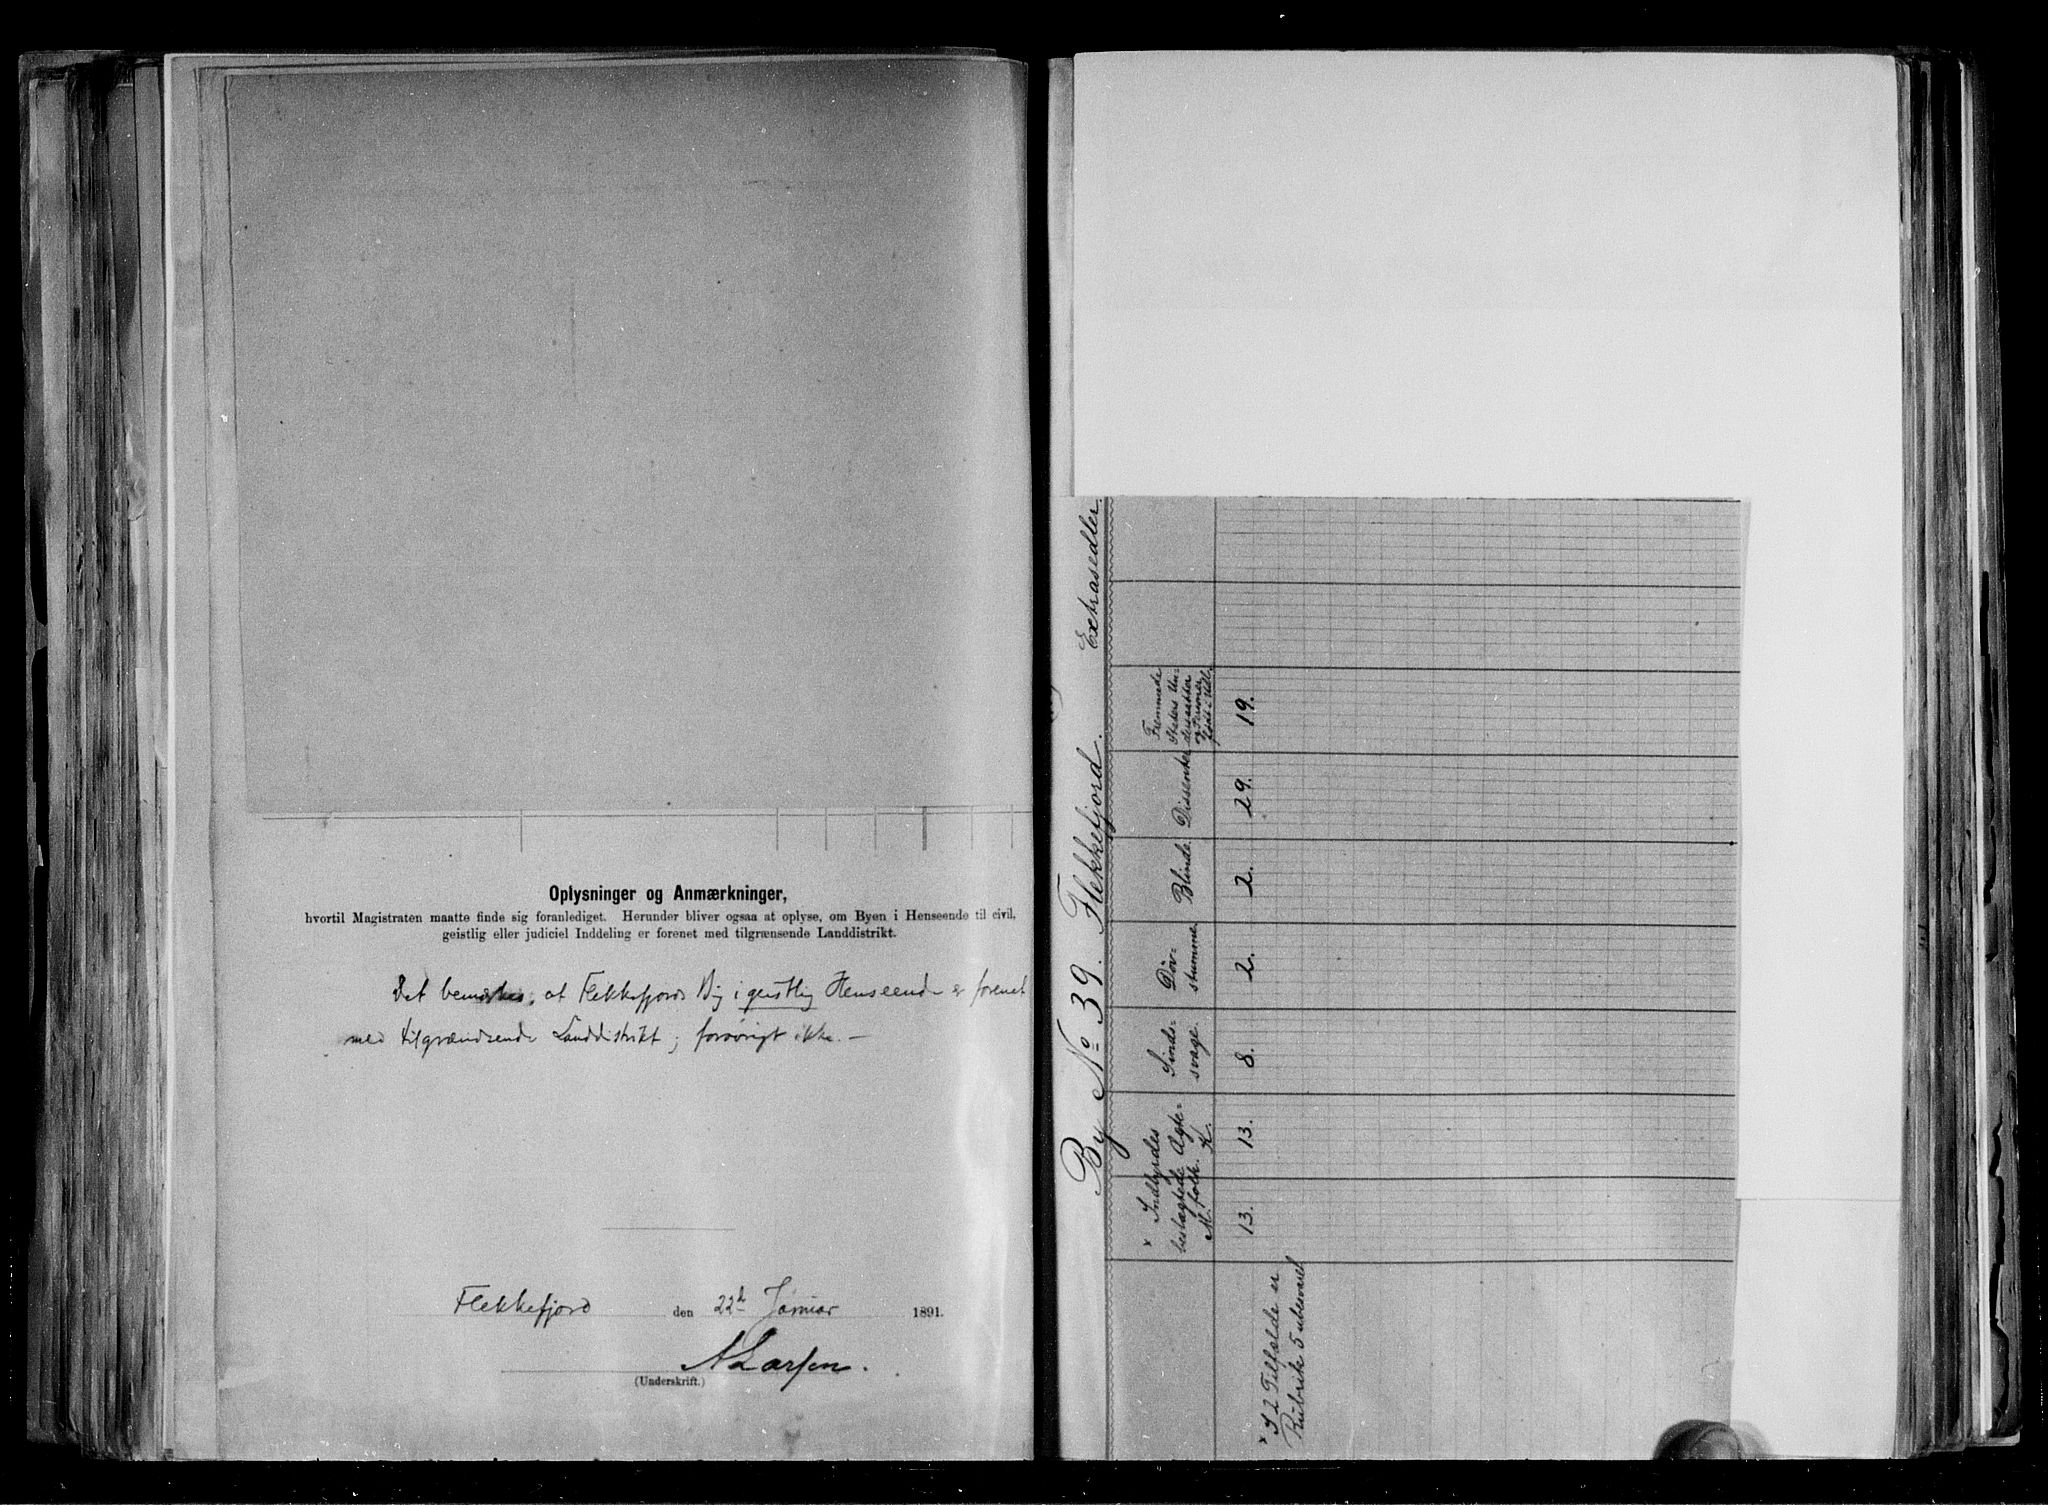 Oplysninger og Anmærkninger,
hvortil Magistraten maatte finde sig foranlediget. Herunder bliver ogsaa at oplyse, om Byen i Henseende til civil,
geistlig eller judiciel Inddeling er forenet med tilgrænsende Landdistrikt.
Det bemærkes, at Flekkefjords By i geistlig Henseende er forenet
med tilgrændsende Landdistrikt; forøvrigt ikke. —
Flekkefjord den 22d Januar 1891.
A Larsen.
(Underskrift.)
By No 39. Flekkefjord. Extrasedler.
× Indbyrdes
beslægtede Ægte-
M. folk. K.
Sinds-
svage.
Døv-
stumme.
Blinde.
Dissenter
Fremmede
Staters Un-
dersaatter
og Personer
født i Udl.
13. 13. 8. 2. 2. 29. 19.
× I 2 Tilfælde er
Rubrik 5 ubesvaret